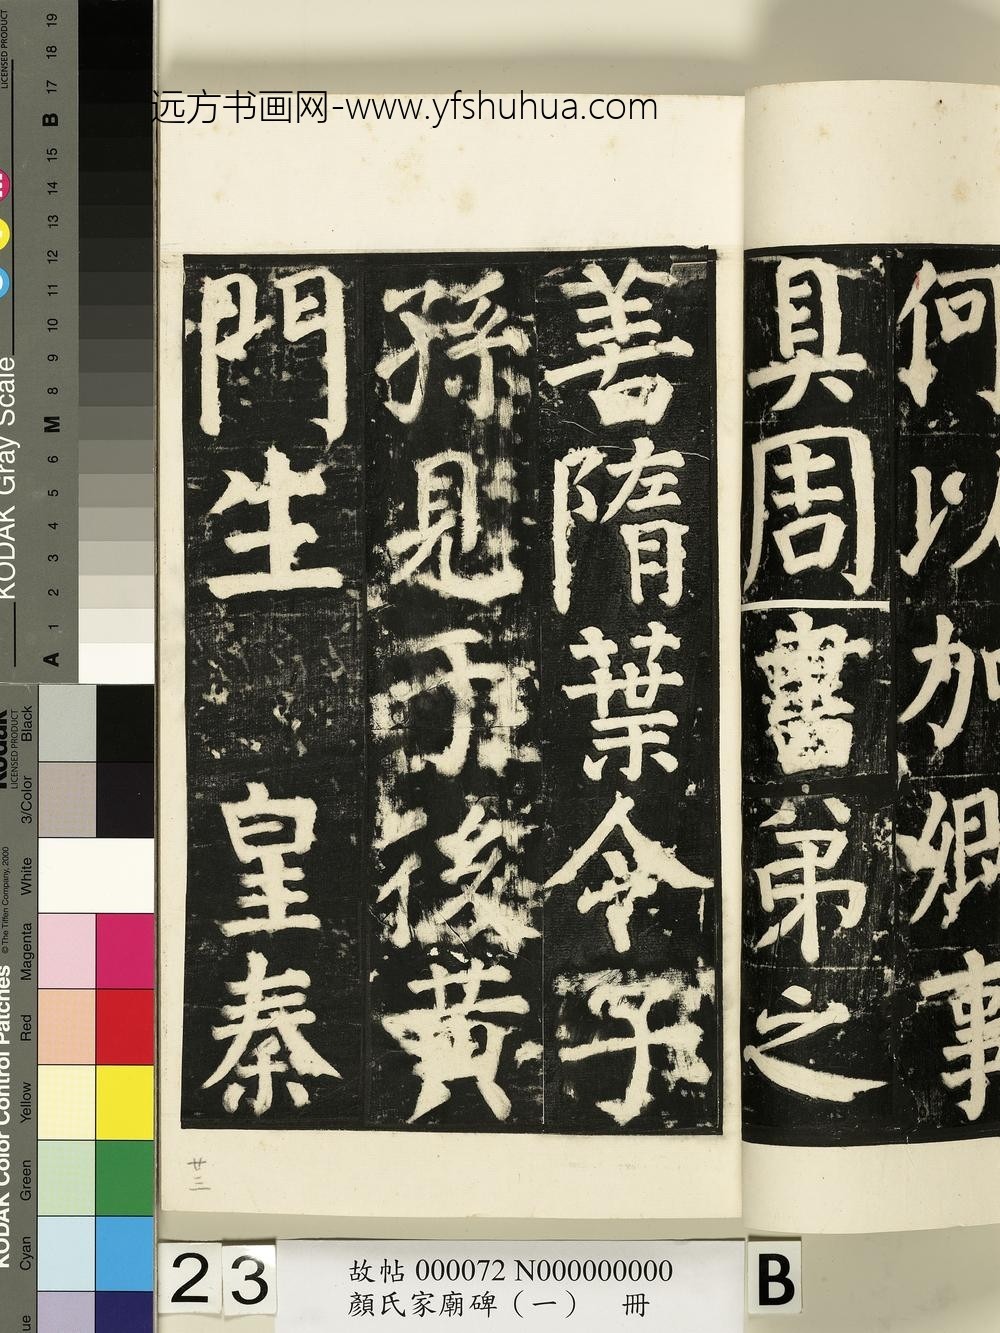 远方书画网-www.yfshuhua.com
何以加卿事
具周書弟之
善隋葉令子
孫見于後黃
門生皇秦
廿三
23
故帖 000072 N000000000
顏氏家廟碑（一） 冊
B
KODAK Gray Scale
LICENSED PRODUCT
A 1 2 3 4 5 6 M 8 9 10 11 12 13 14 15 B 17 18 19
Kodak
LICENSED PRODUCT
KODAK Color Control Patches
© The Tiffen Company, 2000
Cyan Green Yellow Red Magenta White 3/Color Black